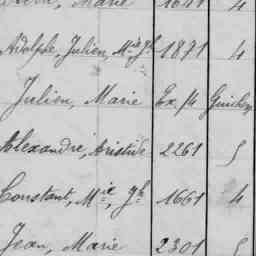 Marie 1641 4
Adolphe, Julien, Mie Jh 1871 4
Julien, Marie Ex. 14 Guichen
Alexandre, Aristide 2261 5
Constant, Mie, Jh 1661 4
Jean, Marie 2301 5